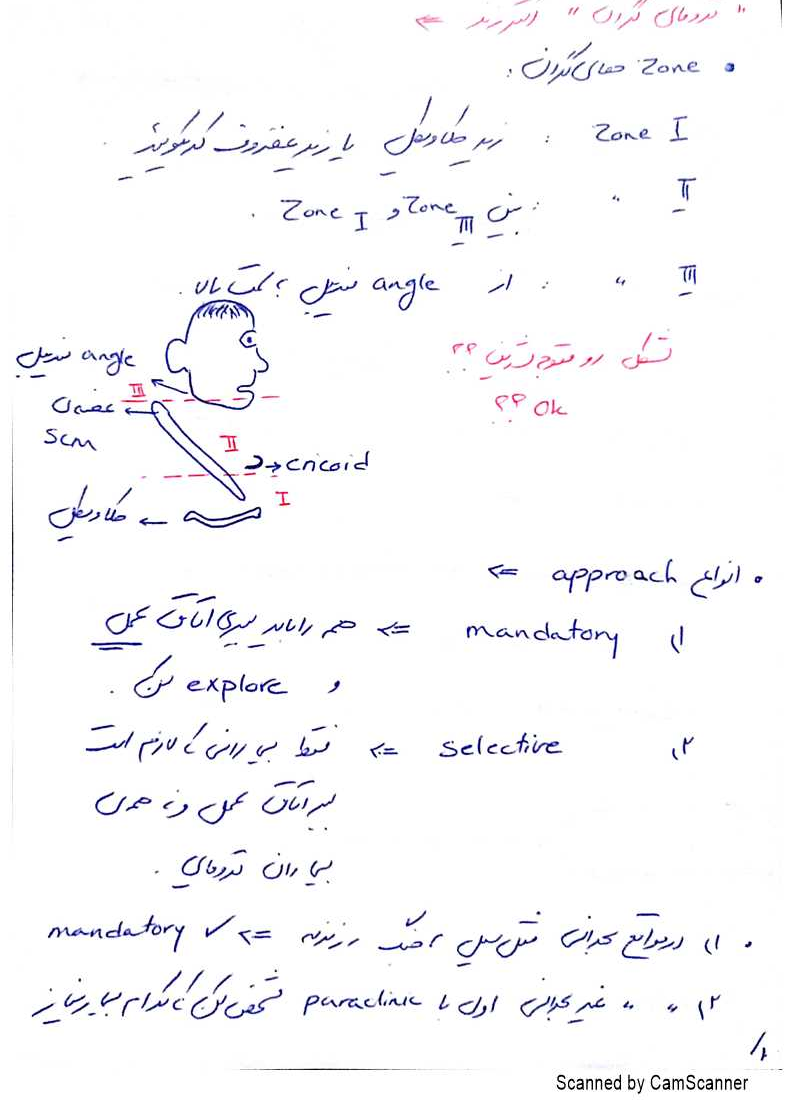 "ترومای گردن" ⇐
• Zone های گردن :
Zone I : زیر کلاویکل یا زیر غضروف کریکوئید .
II " : بین Zone III و Zone I .
III " : از angle مندیبل به سمت بالا .
شکل رو متوجه شدین ؟؟
Ok ؟؟
angle مندیبل
III
عضله
SCM
II
cricoid
I
کلاویکل
• انواع approach ⇐
۱) mandatory ⇐ همه را باید ببری اتاق عمل
و explore کنی .
۲) selective ⇐ فقط بیمارانی که لازم است
ببر اتاق عمل و نه همه‌ی
بیماران ترومای .
• ۱) در مواقع بحرانی مثل جنگ ⇐ mandatory ✓
۲) " " غیر بحرانی اول با paraclinic مشخص کن که کدام بیمار نیاز
۱/
Scanned by CamScanner